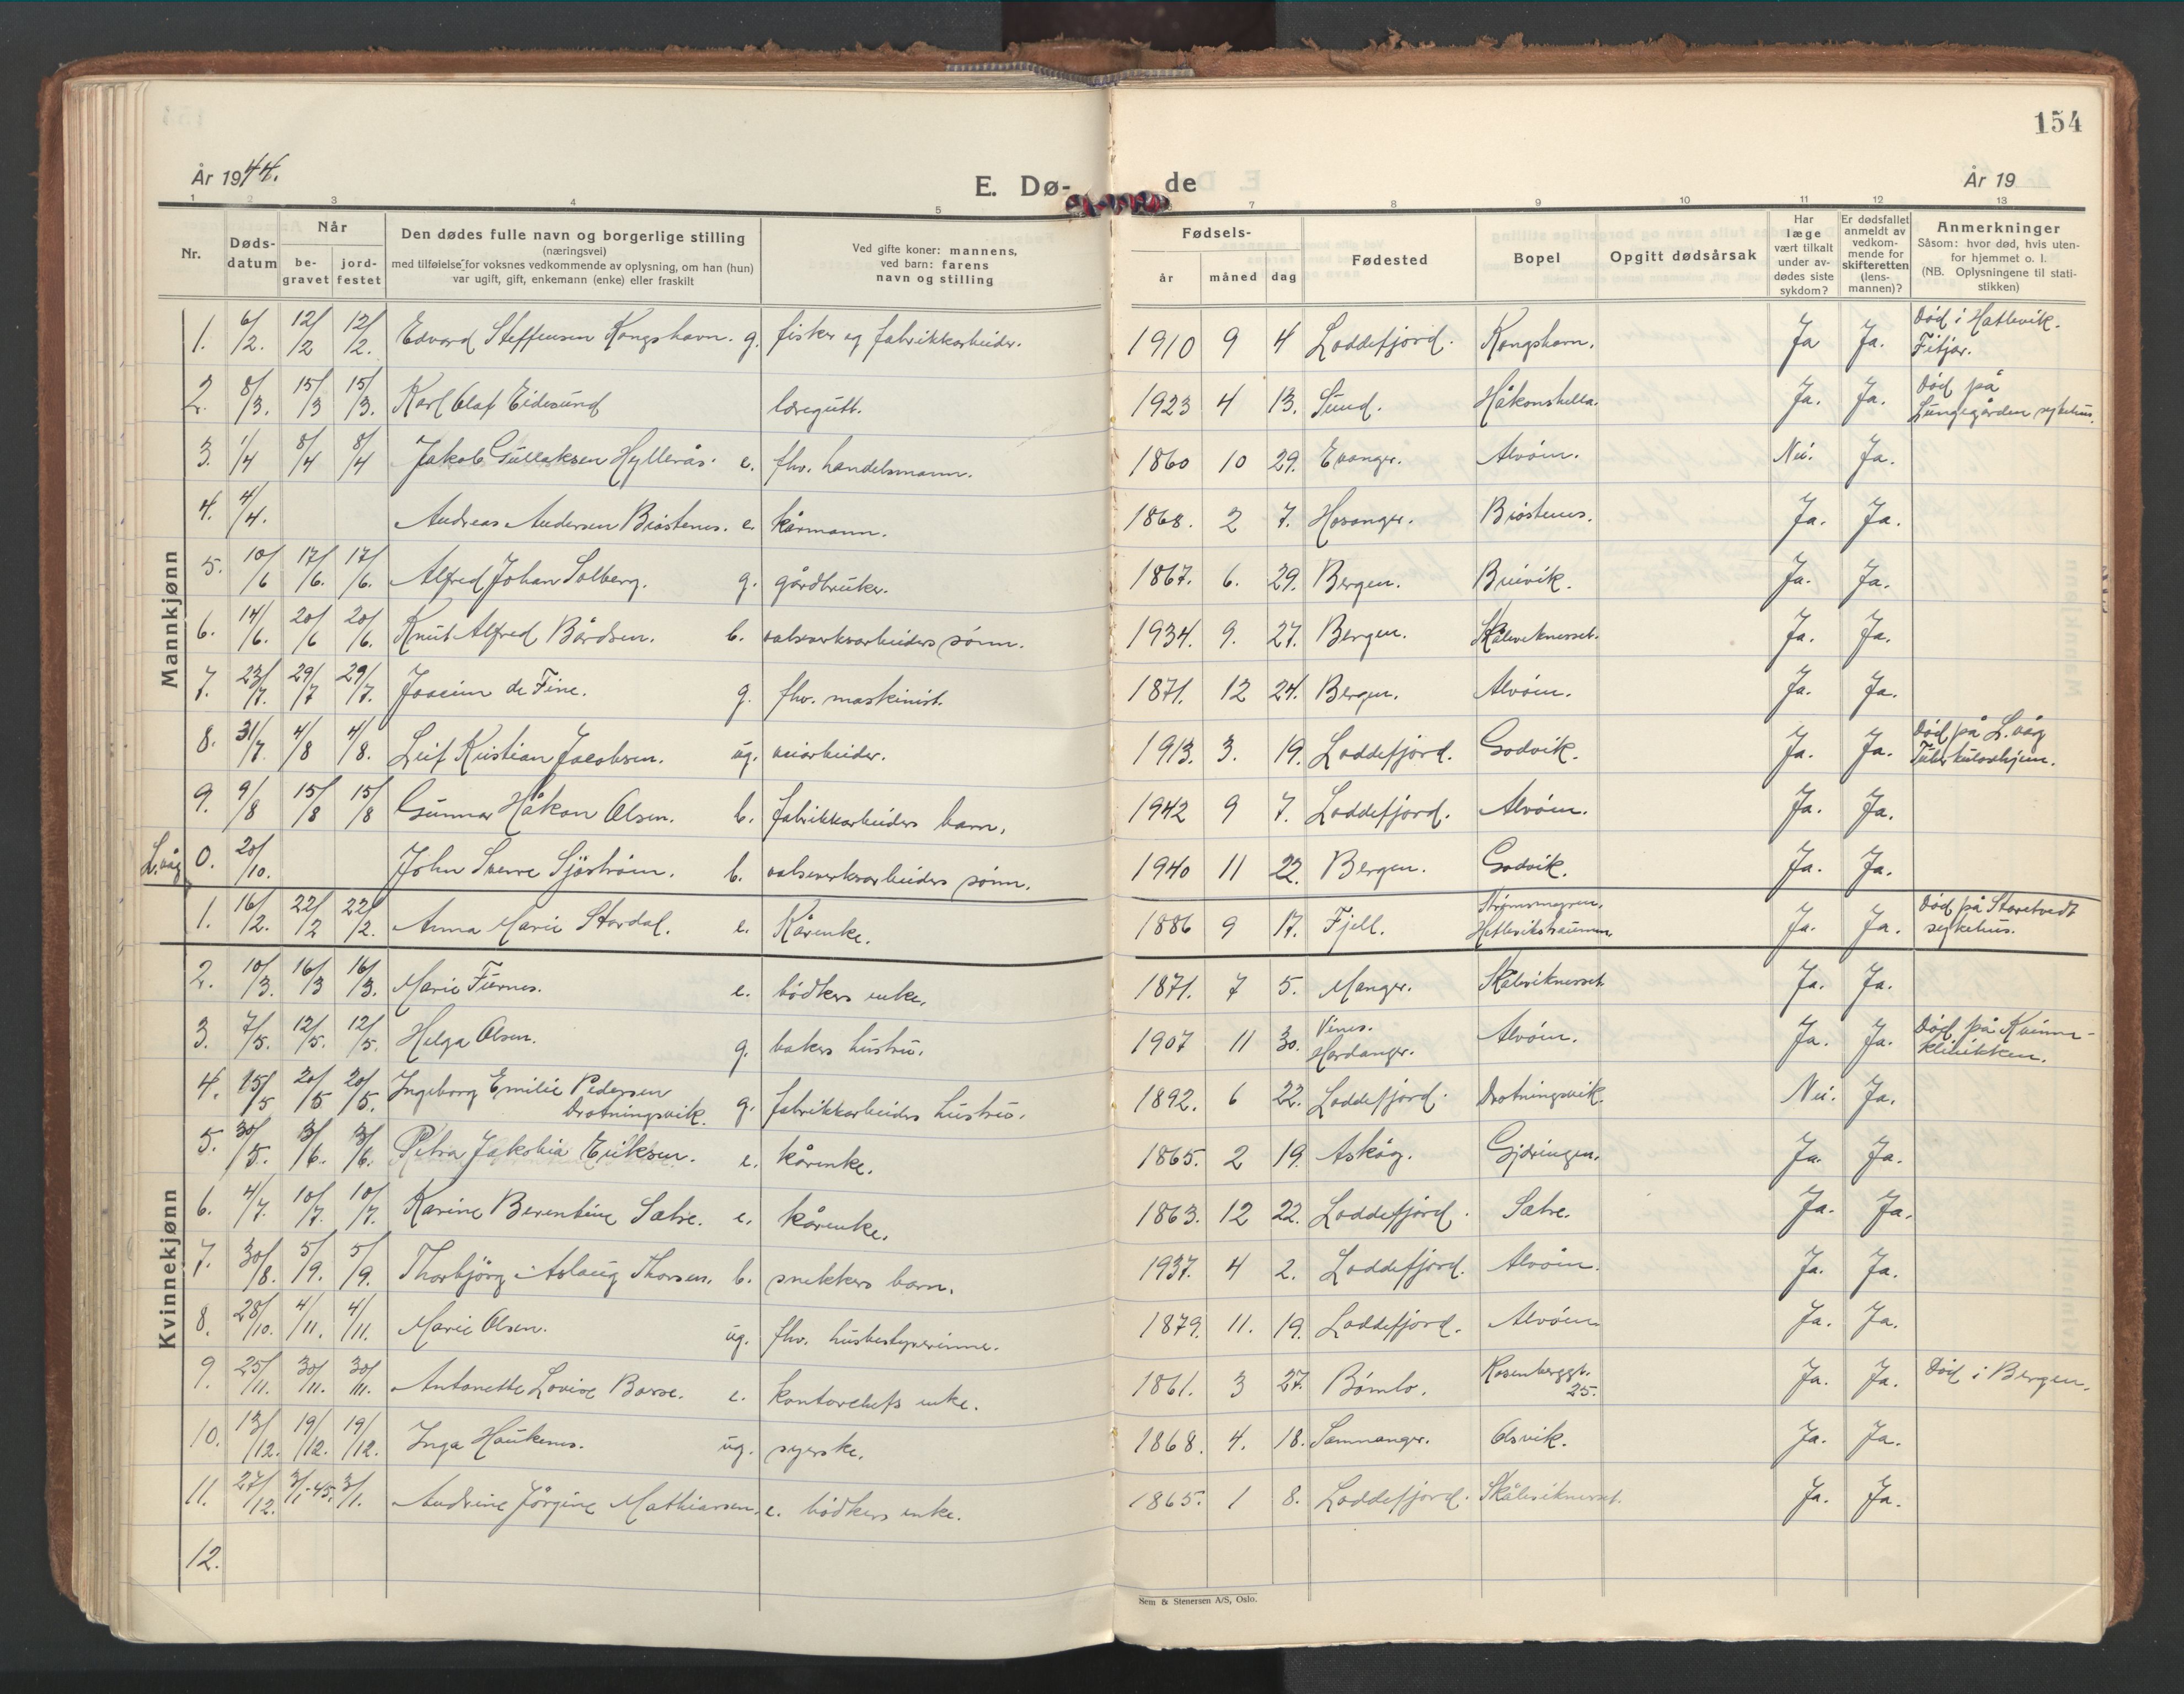 154
År 1944.
E. Dø-
de
År 19
1 2 3 4 5 7 8 9 10 11 12 13
Nr. Døds-datum Når be-gravet jord-festet Den dødes fulle navn og borgerlige stilling (næringsvei) med tilføielse for voksnes vedkommende av oplysning, om han (hun) var ugift, gift, enkemann (enke) eller fraskilt Ved gifte koner: mannens, ved barn: farens navn og stilling Fødsels- år måned dag Fødested Bopel Opgitt dødsårsak Har læge vært tilkalt under av-dødes siste sykdom? Er dødsfallet anmeldt av vedkom-mende for skifteretten (lens-mannen)? Anmerkninger Såsom: hvor død, hvis uten-for hjemmet o. l. (NB. Oplysningene til stati-stikken)
Mannkjønn
1. 6/2. 12/2 12/2. Edvard Steffensen Kongshavn. g. fisker og fabrikkarbeider. 1910 9 4 Loddefjord. Kongshavn. Ja Ja. Død i Hatlevik. Fitjar.
2. 8/3. 15/3 15/3. Karl Olaf Eidesund læregutt. 1923 4 13. Sund. Håkonshella. Ja. Ja. Død på Lungegården sykehus.
3. 1/4 8/4 8/4 Jakob Gullaksen Hyllerås. e. fhv. handelsmann. 1860 10 29. Evanger. Alvøen. Nei. Ja.
4. 4/4. Andreas Andersen Brøstenes. e. kårmann. 1868. 2 7. Hosanger. Brøstenes. Ja. Ja.
5. 10/6 17/6. 17/6. Alfred Johan Solberg. g. gårdbruker. 1867. 6. 29. Bergen. Breivik. Ja. Ja.
6. 14/6. 20/6 20/6. Knut Alfred Bårdsen. b. valseverksarbeiders sønn. 1934. 9. 27. Bergen. Skåleviknesset. Ja. Ja.
7. 23/7. 29/7 29/7. Joacim de Fine. g. fhv. maskinist. 1871. 12 24. Bergen. Alvøen. Ja. Ja.
8. 31/7 4/8 4/8. Leif Kristian Jacobsen. ug. veiarbeider. 1913. 3. 19. Loddefjord. Godvik. Ja. Ja. Død på L.våg Tuberkuloshjem.
9. 9/8 15/8 15/8 Gunnar Håkon Olsen. b. fabrikkarbeiders barn. 1942 9 7. Loddefjord. Alvøen. Ja. Ja.
L.våg 0. 20/10. John Sverre Sjöström. b. valseverksarbeiders sønn. 1940 11 22. Bergen. Godvik. Ja. Ja.
Kvinnekjønn
1. 16/2. 22/2 22/2. Anna Marie Stordal. e. Kårenke. 1886 9 17. Fjell. Hetlevikstraumen Ja. Ja. Død på Storetvedt sykehus.
2. 10/3. 16/3 16/3. Marie Furnes. e. bødkers enke. 1871. 7 5. Manger. Skåleviknesset. Ja. Ja.
3. 7/5. 12/5. 12/5. Helga Olsen. g. bakers hustru. 1907 11 30. Vines. Hardanger. Alvøen. Ja. Ja. Død på Kvinne-klinikken.
4. 15/5 20/5 20/5. Ingeborg Emilie Pedersen Drotningsvik. g. fabrikkarbeiders hustru. 1892. 6 22. Loddefjord. Drotningsvik. Nei. Ja.
5. 30/5. 3/6. 3/6. Petra Jakobia Eriksen. e. kårenke. 1865. 2 19. Askøy. Gjøringen. Ja. Ja.
6. 4/7. 10/7. 10/7. Karine Berentine Sætre. e. kårenke. 1863. 12 22. Loddefjord. Sætre. Ja. Ja.
7. 30/8. 5/9. 5/9. Thorbjörg Aslaug Thorsen. b. snekkers barn. 1937. 4 2. Loddefjord. Alvøen. Ja. Ja.
8. 28/10. 4/11. 4/11. Marie Olsen. ug. fhv. husbestyrerinne. 1879. 11. 19. Loddefjord. Alvøen Ja. Ja.
9. 25/11. 30/11. 30/11. Antonette Lovise Barse. e. kontorchefs enke. 1861. 3 27. Bømlo. Rosenbergsgt. 25. Ja. Ja. Død i Bergen.
10. 13/12. 19/12. 19/12. Inga Haukenes. ug. syerske. 1868. 4. 18. Samnanger. Olsvik. Ja. Ja.
11. 27/12. 3/1-45. 3/1. Andrine Jörgine Mathiassen. e. bødkers enke. 1865. 1 8. Loddefjord. Skåleviknesset. Ja. Ja.
12.
Sem & Stenersen A/S, Oslo.